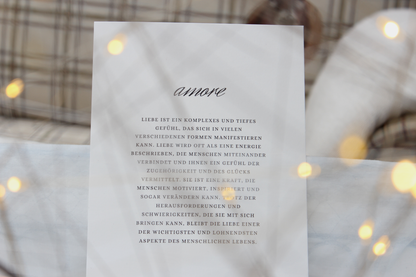 amore
LIEBE IST EIN KOMPLEXES UND TIEFES
GEFÜHL, DAS SICH IN VIELEN
VERSCHIEDENEN FORMEN MANIFESTIEREN
KANN. LIEBE WIRD OFT ALS EINE ENERGIE
BESCHRIEBEN, DIE MENSCHEN MITEINANDER
VERBINDET UND IHNEN EIN GEFÜHL DER
ZUGEHÖRIGKEIT UND DES GLÜCKS
VERMITTELT. SIE IST EINE KRAFT, DIE
MENSCHEN MOTIVIERT, INSPIRIERT UND
SOGAR VERÄNDERN KANN. TROTZ DER
HERAUSFORDERUNGEN UND
SCHWIERIGKEITEN, DIE SIE MIT SICH
BRINGEN KANN, BLEIBT DIE LIEBE EINER
DER WICHTIGSTEN UND LOHNENDSTEN
ASPEKTE DES MENSCHLICHEN LEBENS.